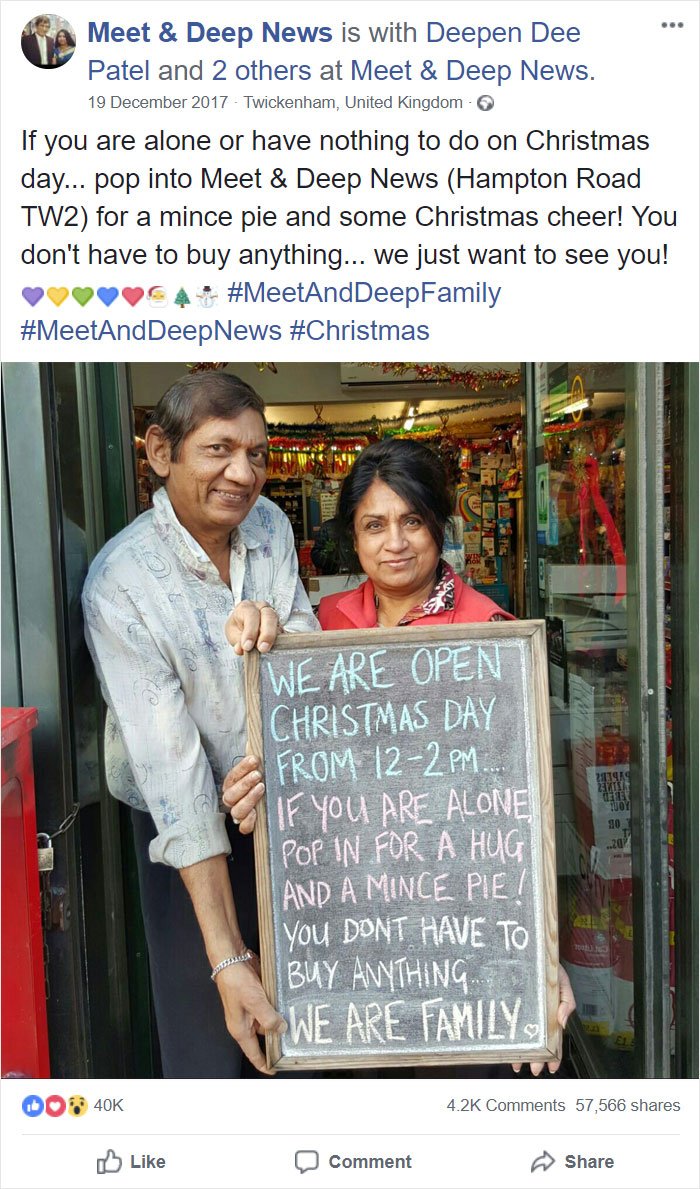 Meet & Deep News is with Deepen Dee
Patel and 2 others at Meet & Deep News.
19 December 2017 · Twickenham, United Kingdom ·
If you are alone or have nothing to do on Christmas
day... pop into Meet & Deep News (Hampton Road
TW2) for a mince pie and some Christmas cheer! You
don't have to buy anything... we just want to see you!
💜💛💚💙❤️🎅🎄⛄ #MeetAndDeepFamily
#MeetAndDeepNews #Christmas
WE ARE OPEN
CHRISTMAS DAY
FROM 12-2PM....
IF YOU ARE ALONE
POP IN FOR A HUG
AND A MINCE PIE!
YOU DONT HAVE TO
BUY ANYTHING....
WE ARE FAMILY
40K
4.2K Comments 57,566 shares
Like
Comment
Share